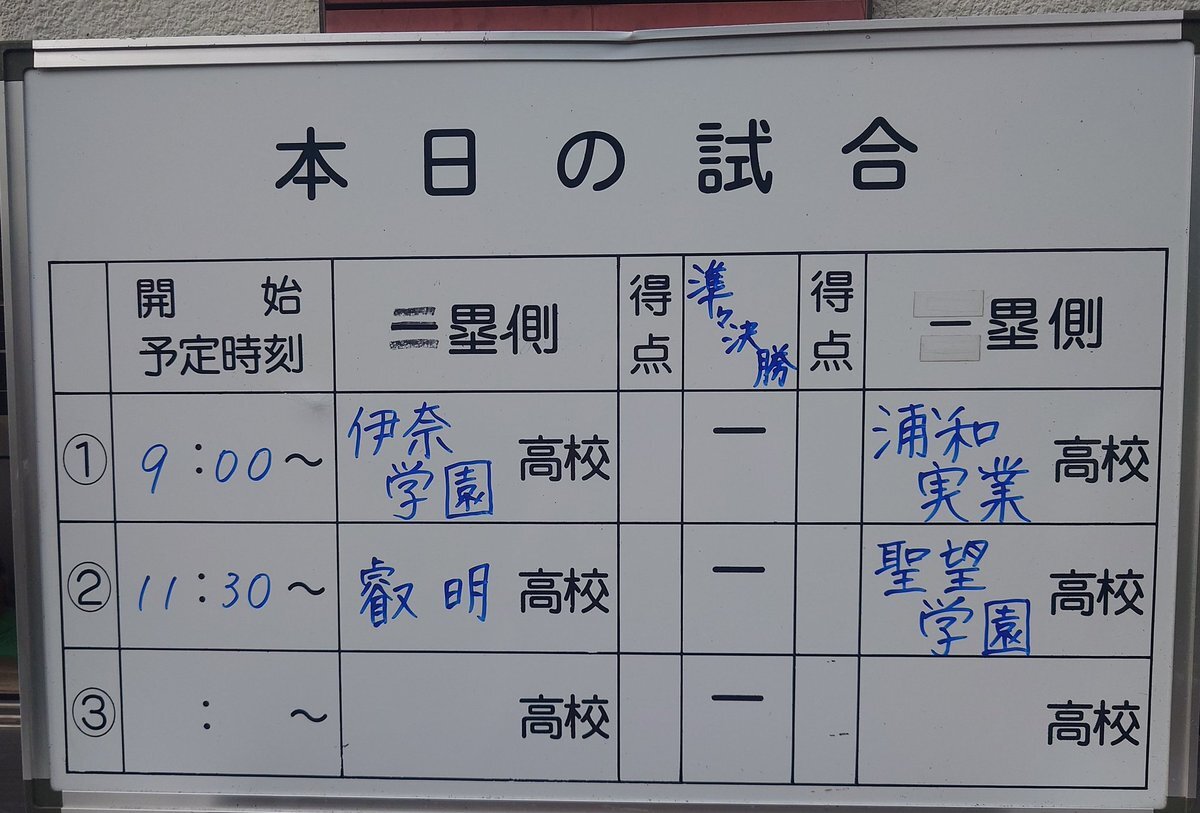 本日の試合
開始
予定時刻
三塁側
得点
準々決勝
得点
一塁側
① 9:00～ 伊奈学園 高校 ー 浦和実業 高校
② 11:30～ 叡明 高校 ー 聖望学園 高校
③ :～ 高校 ー 高校